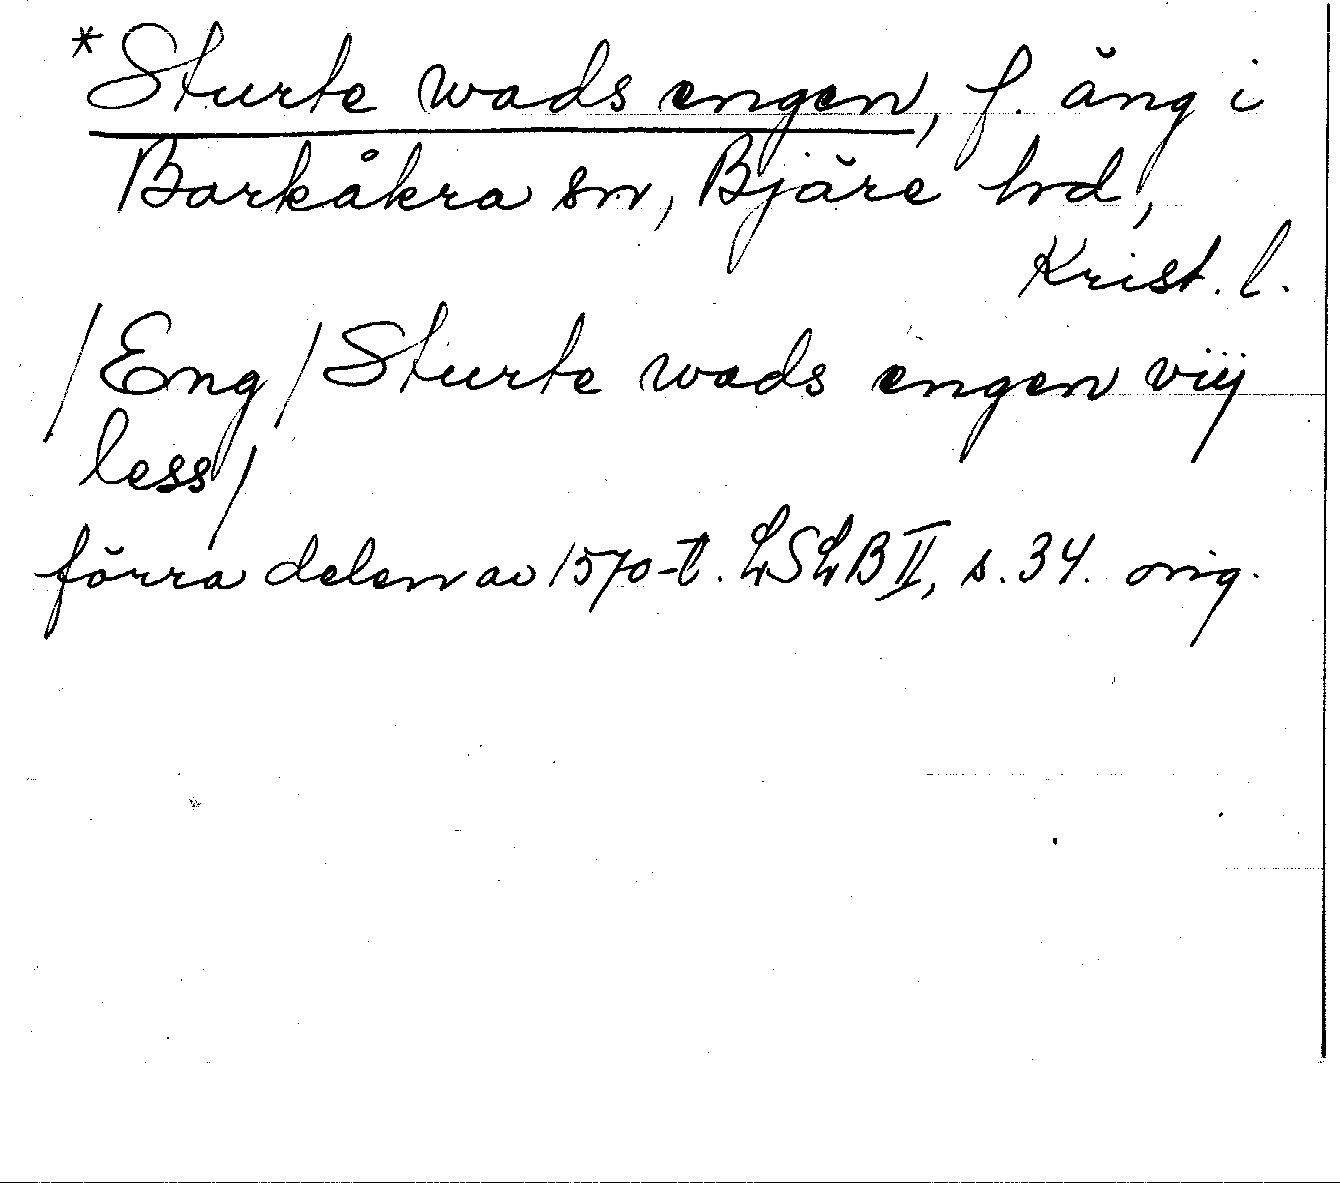 *Sturte wads engen, f. äng i
Barkåkra sn, Bjäre hd,
Krist. l.
/Eng/Sturte wads engen viij
less/
förra delen av 1570-t. LSLB II, s. 34. orig.